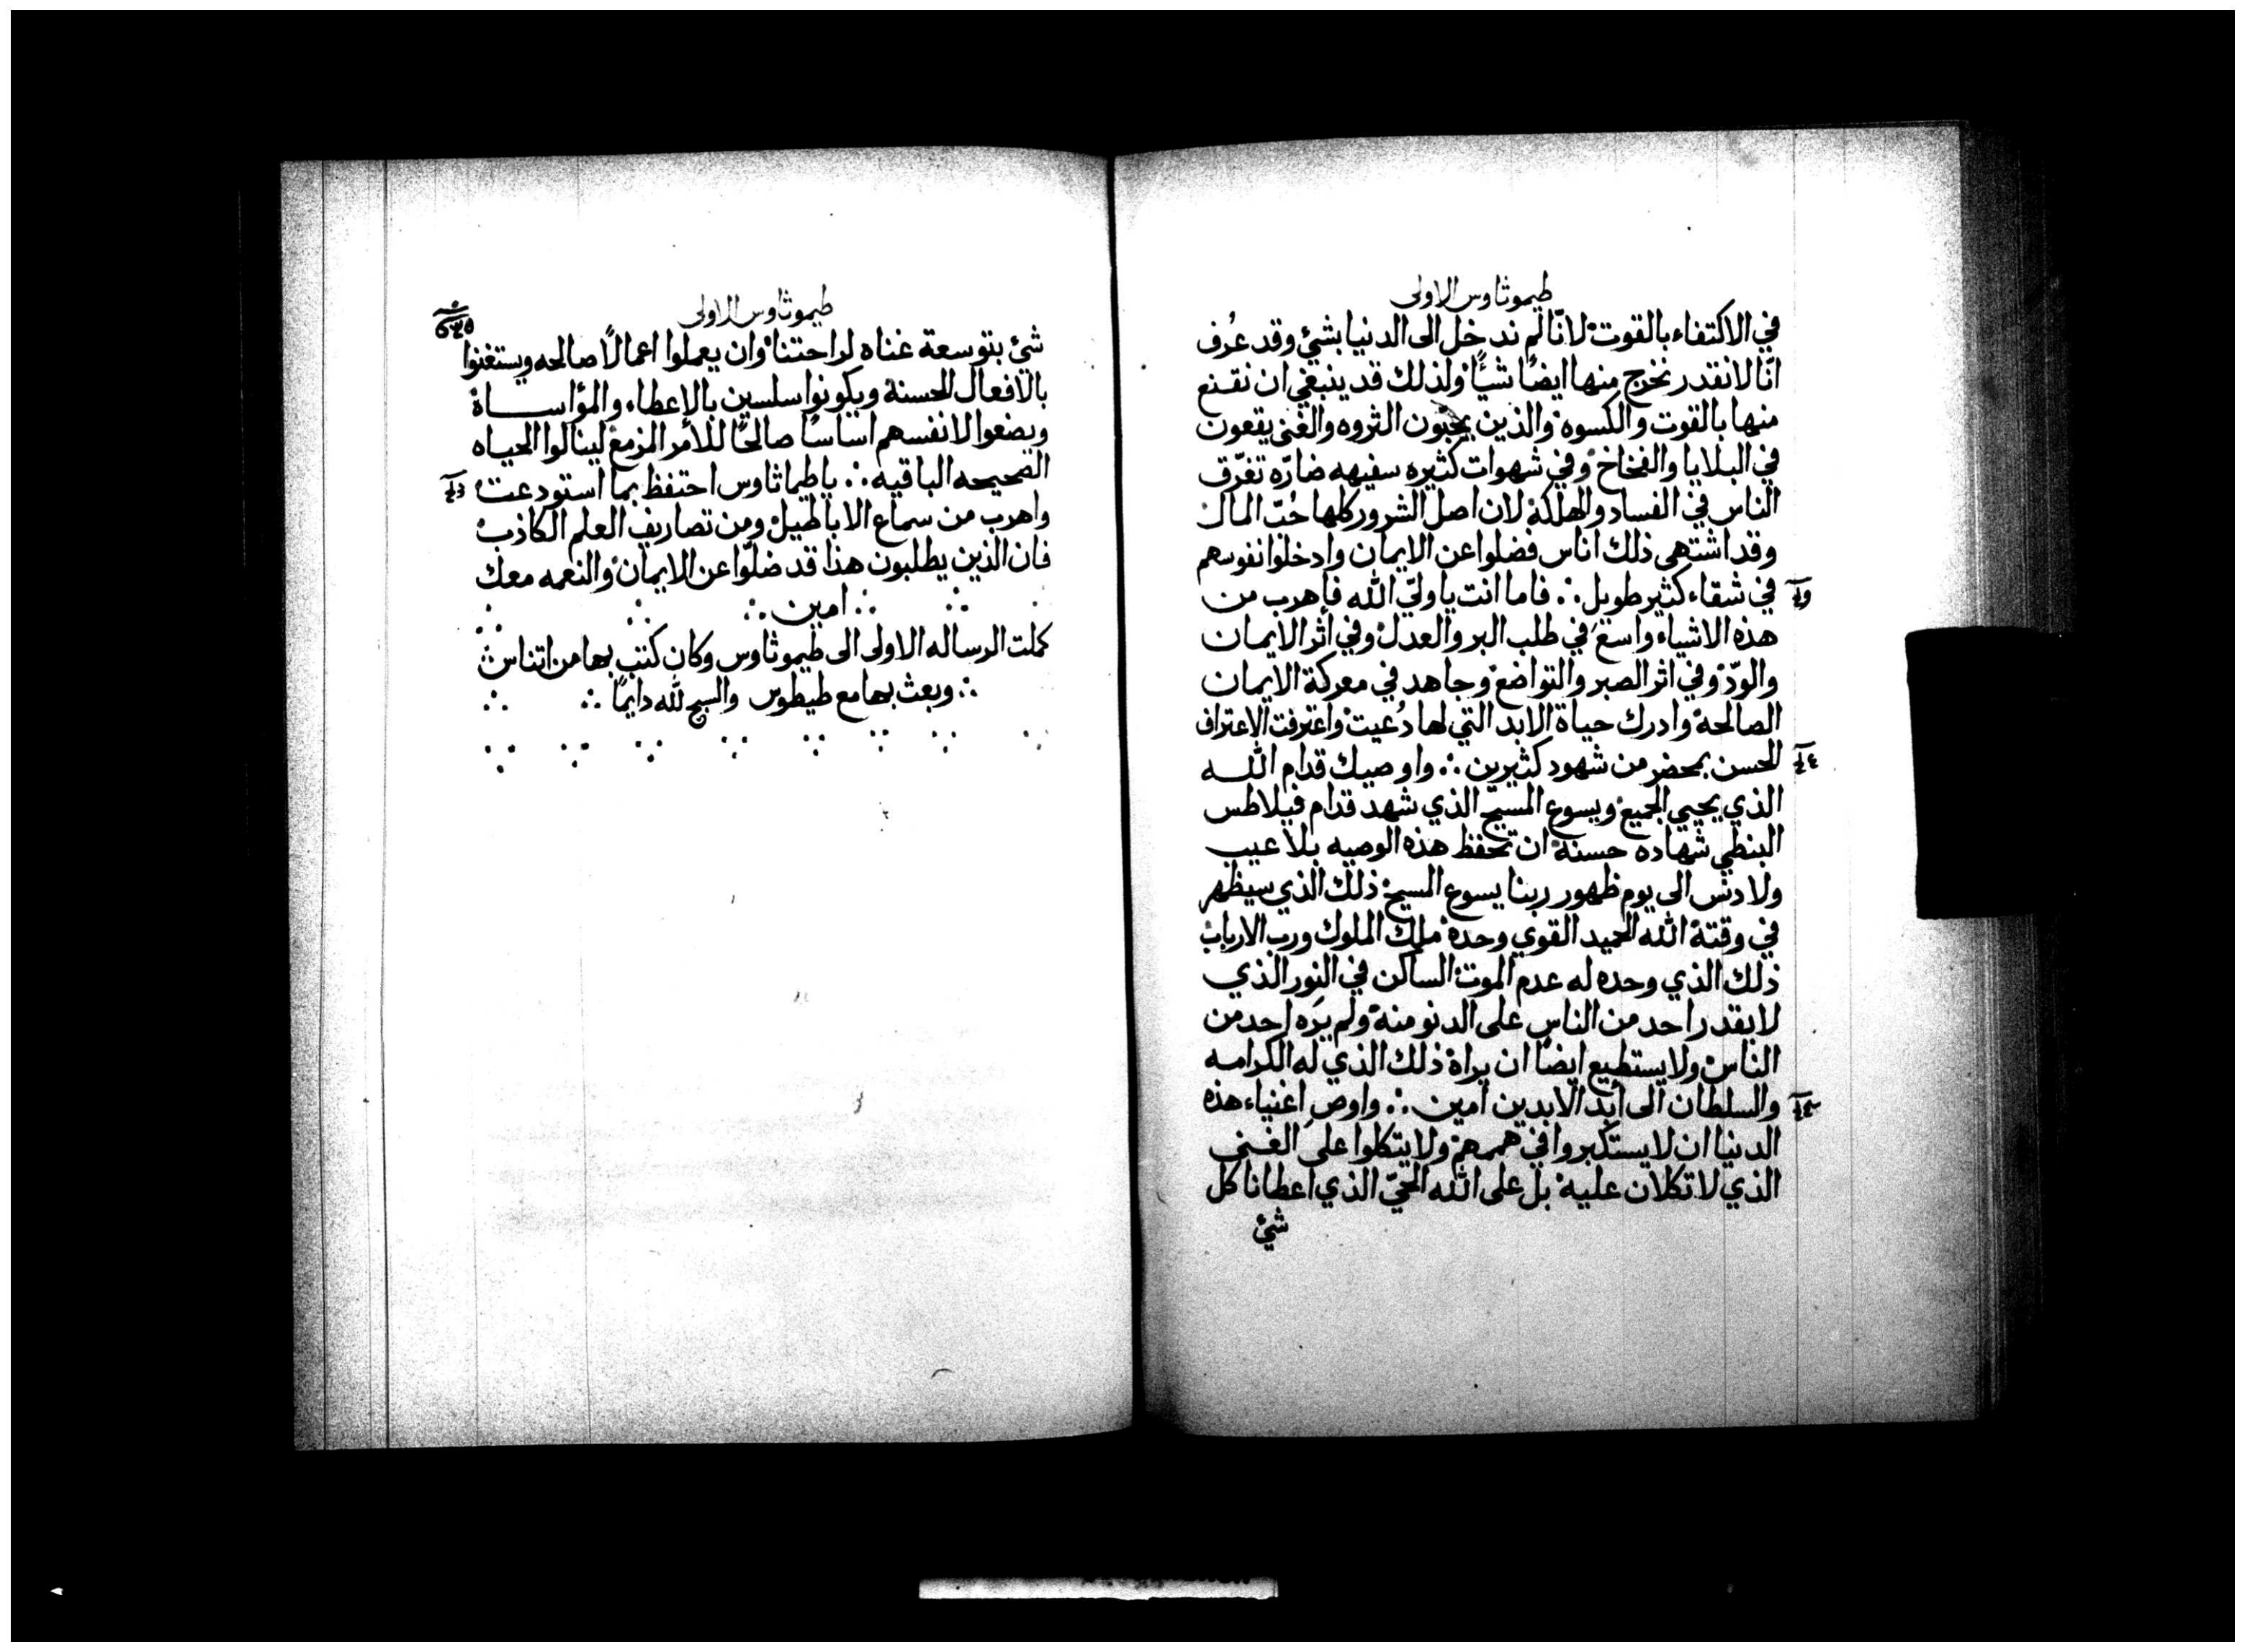 طيموثاوس الاولى
في الاكتفاء بالقوت لانّا لم ندخل الى الدنيا بشئ وقد عُرف
انّا لا نقدر نخرج منها ايضًا شيًّا ولذلك قد ينبغي ان نقنع
منها بالقوت والكسوه والذين يحبّون الثروه والغنى يقعون
في البلايا والفخاخ وفي شهوات كثيره سفيهه ضارّه تغرّق
الناس في الفساد والهلكة لان اصل الشرور كلها حُبّ المال
وقد اشتهى ذلك اناس فضلوا عن الايمان وادخلوا نفوسهم
في شقاء كثير طويل ∴ فاما انت يا وليّ الله فاهرب من
هذه الاشياء واسع في طلب البر والعدل وفي اثر الايمان
والودّ وفي اثر الصبر والتواضع وجاهد في معركة الايمان
الصالحة وادرك حياة الابد التي لها دُعيت واعترفت الاعتراف
الحسن بمحضر من شهود كثيرين ∴ واوصيك قدام الله
الذي يحيي الجميع ويسوع المسيح الذي شهد قدام فيلاطس
البنطي شهاده حسنة ان تحفظ هذه الوصيه بلا عيب
ولا دنس الى يوم ظهور ربنا يسوع المسيح ذلك الذي سيظهر
في وقتة الله الحميد القوي وحدة ملك الملوك ورب الارباب
ذلك الذي وحده له عدم الموت الساكن في النور الذي
لا يقدر احد من الناس على الدنو منة ولم يرَه احد من
الناس ولا يستطيع ايضًا ان يراة ذلك الذي له الكرامه
والسلطان الى أبد الابدين امين ∴ واوصِ اغنياء هذه
الدنيا ان لا يستكبروا في هممهم ولا يتكلوا على الغنى
الذي لا تكلان عليه بل على الله الحيّ الذي اعطانا كل
شئ
طيموثاوس الاولى
شئ بتوسعة غناه لراحتنا وان يعملوا اعمالًا صالحه ويستغنوا
بالافعال الحسنة ويكونوا سلسين بالاعطاء والمؤاساة
ويضعوا لانفسهم اساسًا صالحًا للأمر المزمع لينالوا الحياه
الصحيحه الباقيه ∴ يا طيماثاوس احتفظ بما استودعت
واهرب من سماع الاباطيل ومن تصاريف العلم الكاذب
فان الذين يطلبون هذا قد ضلّوا عن الايمان والنعمه معك
∴ امين ∴
كملت الرساله الاولى الى طيموثاوس وكان كتب بها من اتناس
∴ وبعث بها مع طيطوس والسبح لله دايمًا ∴